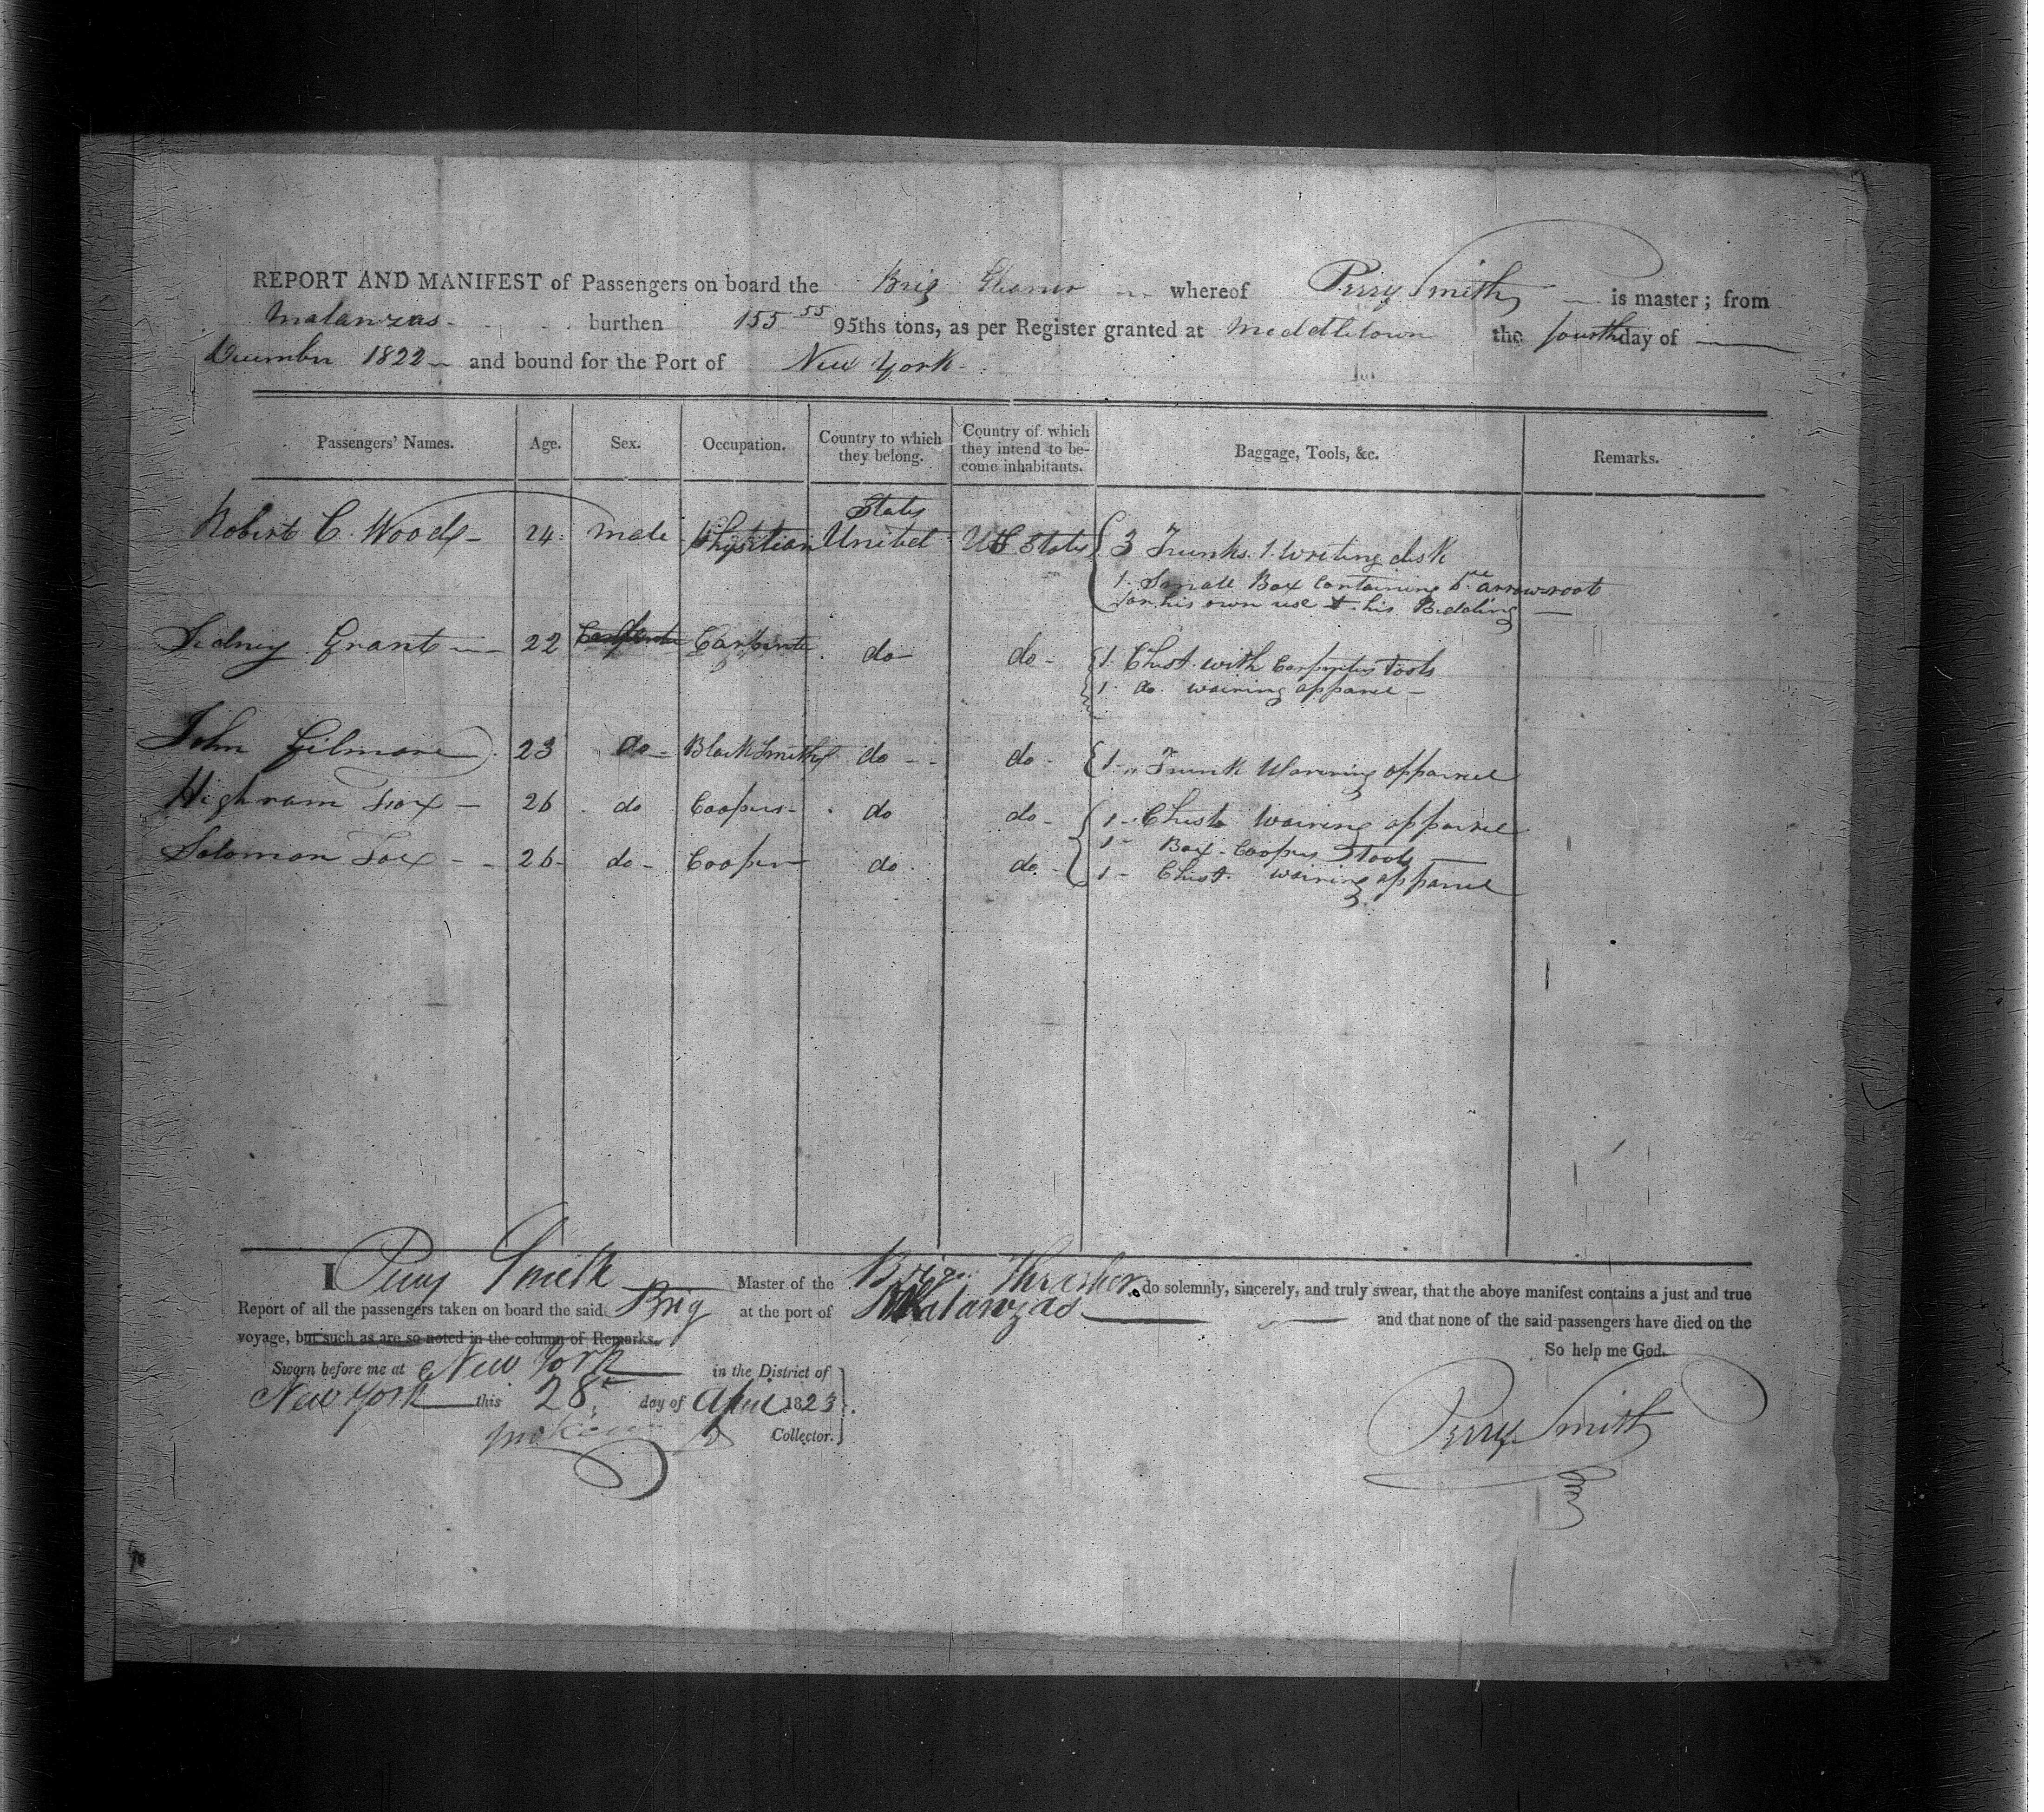 REPORT AND MANIFEST of Passengers on board the Brig whereof Perry Smith is master; from
Matanzas - burthen 155 55 95ths tons, as per Register granted at Meddletown the fourth day of
December 1822 and bound for the Port of New York -
Passengers' Names. Age. Sex. Occupation. Country to which they belong. Country of which they intend to become inhabitants. Baggage, Tools, &c. Remarks.
States
Robert C. Wood - 24 Male Physitian United U S States 3 Trunks. 1. Writing disk
1. Small Box Containing arrowroot
for his own use & his Bedding
Sidney Grant 22 Carpinter do do - 1. Chist. with Carpinters Tools
1. do. wairing apparel -
John Gilmore 23 do - BlackSmith do - - do - 1 - Trunk Wairing apparel
Highram 26 do Cooper - do do - 1 - Chist Wairing apparel
1 - Box - Coopers Tools
Solomon 26 - do - Cooper do do. 1 - Chist. wairing apparel
I Perry Smith Master of the Brig Thrasher do solemnly, sincerely, and truly swear, that the above manifest contains a just and true
Report of all the passengers taken on board the said Brig at the port of Matanzas and that none of the said passengers have died on the
voyage, but such as are so noted in the column of Remarks.
So help me God.
Sworn before me at New York in the District of
New York this 28 day of April 1823.
Collector.
Perry Smith